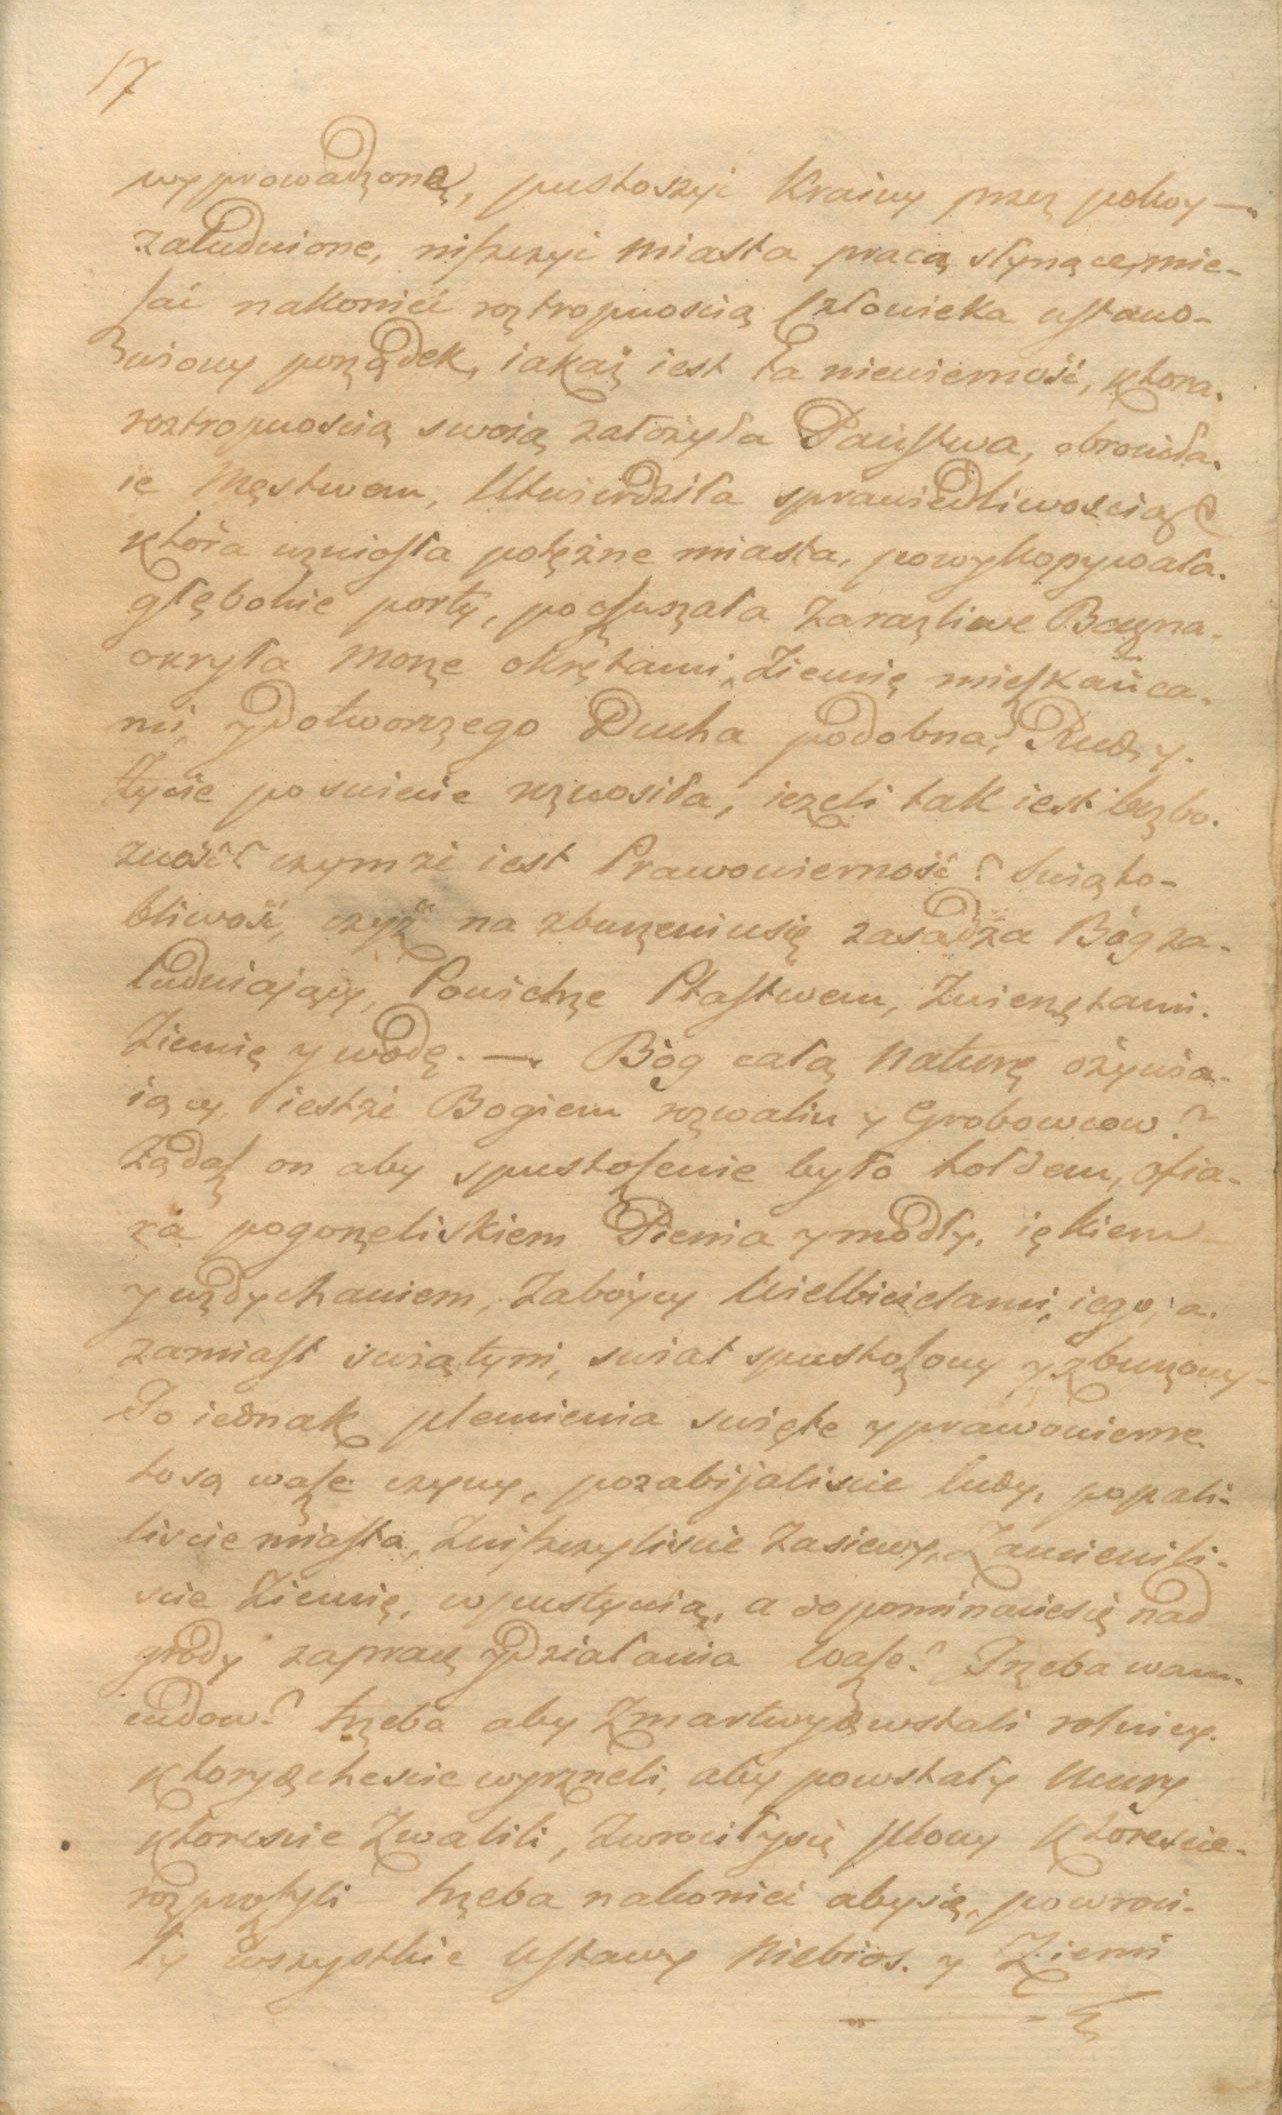 17
wyprowadzone, pustoszyć Krainy przez pokoy —
zaludnione, niszczyć miasta pracą słynące, mie-
szać nakoniec roztropnoscią człowieka ustano-
wiony porządek, iakaż iest ta niewierność, ktora.
roztropnoscią swoią założyła Państwa, obroniła.
ie Męstwem, Utwierdziła sprawiedliwoscią
ktora wzniosła potężne miasta, powykopywała.
głębokie porty, poosuszała Zaraźliwe Bagna.
okryła Morze okrętami, Ziemię mieszkańca-
mi, y dotworzego Ducha podobna, Ruch y.
życie po swiecie roznosiła, ieżeli tak iest bezbo.
żność czymże iest Prawowierność? Swiąto-
bliwość, czyż na zburzeniu się zasadza Bóg za-
ludniaiący, Powietrze Ptastwem, Zwierzętami.
Ziemię y wodę. — Bóg całą Naturę ożywia-
iący, iestże Bogiem rozwalin y Grobowcow?
Żądasz on aby spustoszenie było hołdem, ofia-
rą pogorzeliskiem Pienia y modły, iękiem
y wzdychaniem, Zabóycy Wielbicielami, iego, a.
zamiast swiątyni, swiat spustoszony y zburzony-
To iednak plemienia swięte y prawowierne.
to są wasze czyny, pozabijaliscie ludy, popali-
liscie miasta, Zniszczyliscie Zasiewy, Zamienili-
scie Ziemię, w pustynią, a dopominacie się nad
grody za pracę y działania wasze? Trzeba wam.
cudow? trzeba aby Zmartwych wstali rolnicy.
ktorych escie wyrzneli, aby powstały Mury
ktorescie Zwalili, Zwrociły się plony ktorescie.
rozproszyli trzeba nakoniec aby się powroci-
ły wszystkie Ustawy Niebios. y Ziemi